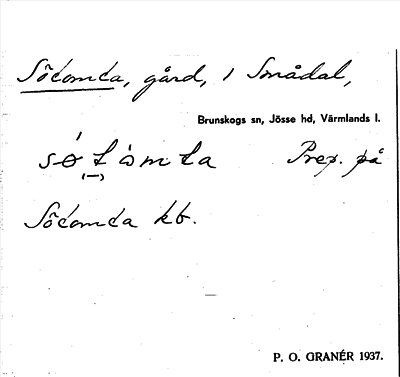 Södomta, gård, i Smådal,
Brunskogs sn, Jösse hd, Värmlands l.
Prep. på
Södomta kb.
P. O. GRANÉR 1937.